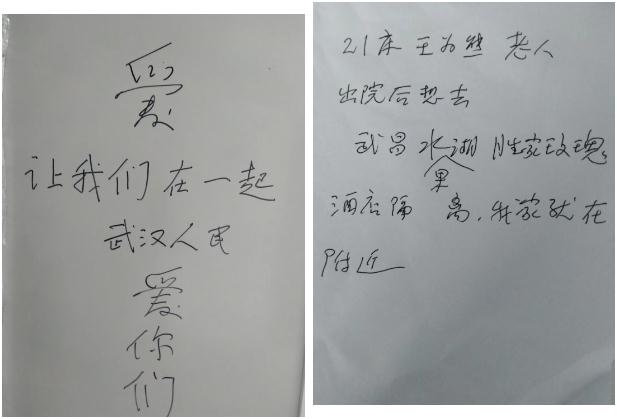 爱
让我们在一起
武汉人民
爱
你
们
21床 王为 老人
出院后想去
武昌水果湖 胜家玫瑰
酒店隔离,我家就在
附近